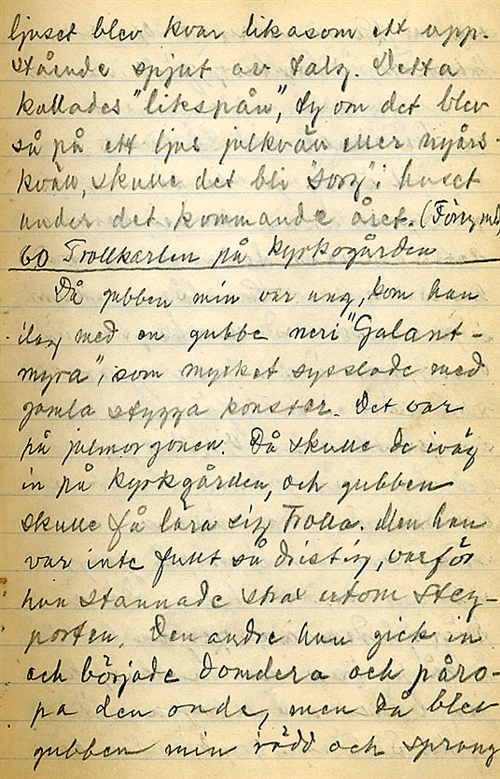 ljuset blev kvar likasom ett upp-
stående spjut av talg. Detta
kallades "likspån", ty om det blev
så på ett ljus julkväll eller nyårs-
kväll, skulle det bli "sorg" i huset
under det kommande året. (Förng
60 Trollkarlen på kyrkogården
Då gubben min var ung, kom han
ilag med en gubbe neri "Galant-
myra", som mycket sysslade med
gamla stygga konster. Det var
på julmorgonen. Då skulle de iväg
in på kyrkgården, och gubben
skulle få lära sig Trolla. Men han
var inte fullt så dristig, varför
han stannade strax utom Steg-
porten. Den andre han gick in
och började domdera och påro-
pa den onde, men då blev
gubben min rädd och sprang